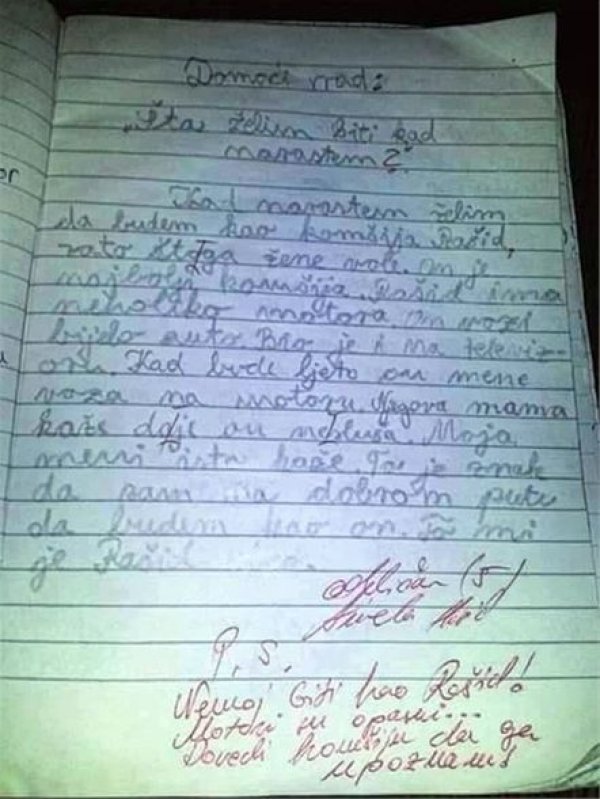 Domaći rad:
„Šta želim biti kad
narastem?"
Kad narastem želim
da budem kao komšija Rašid,
zato što ga žene vole. On je
najbolji komšija. Rašid ima
nekoliko motora. On vozi
bijelo auto. Bio je i na televiz-
oru. Kad bude ljeto on mene
voza na motoru. Njegova mama
kaže da je on nesluša. Moja
meni isto kaže. To je znak
da sam na dobrom putu
da budem kao on. To mi
je Rašid
Odličan (5)
P. S.
Nemoj biti kao Rašid!
Motori su opasni...
Dovedi komšiju da ga
upoznamo